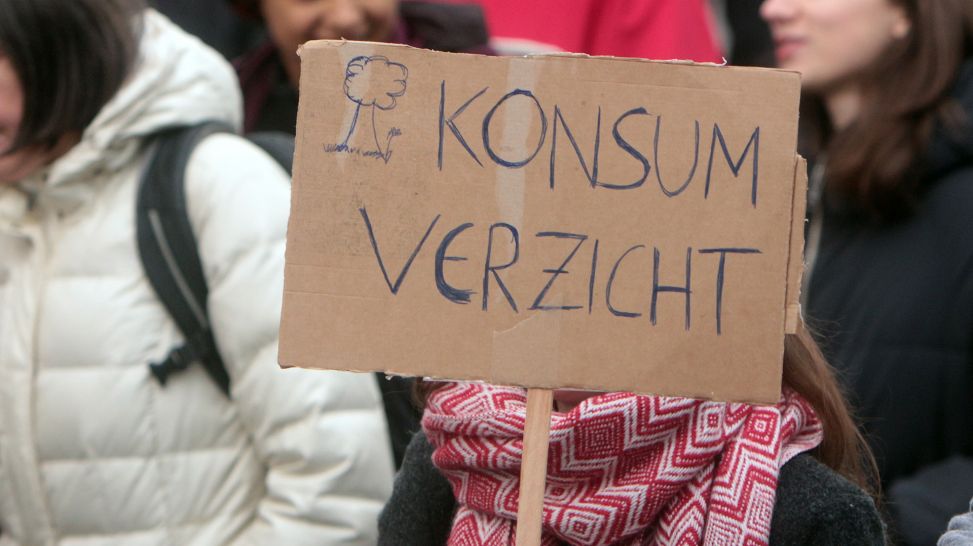 KONSUM
VERZICHT